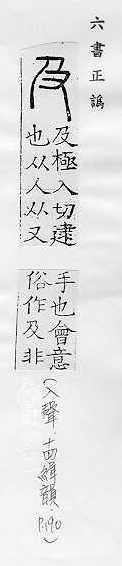 六書正譌
及
及極入切逮
也从人从又
手也會意
俗作及非
(入聲 十四緝韻.P.190)